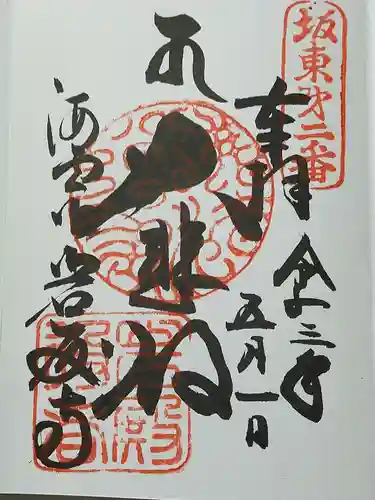 坂東第二番
奉拝
令和三年
五月一日
大悲殿
海雲山
岩殿寺